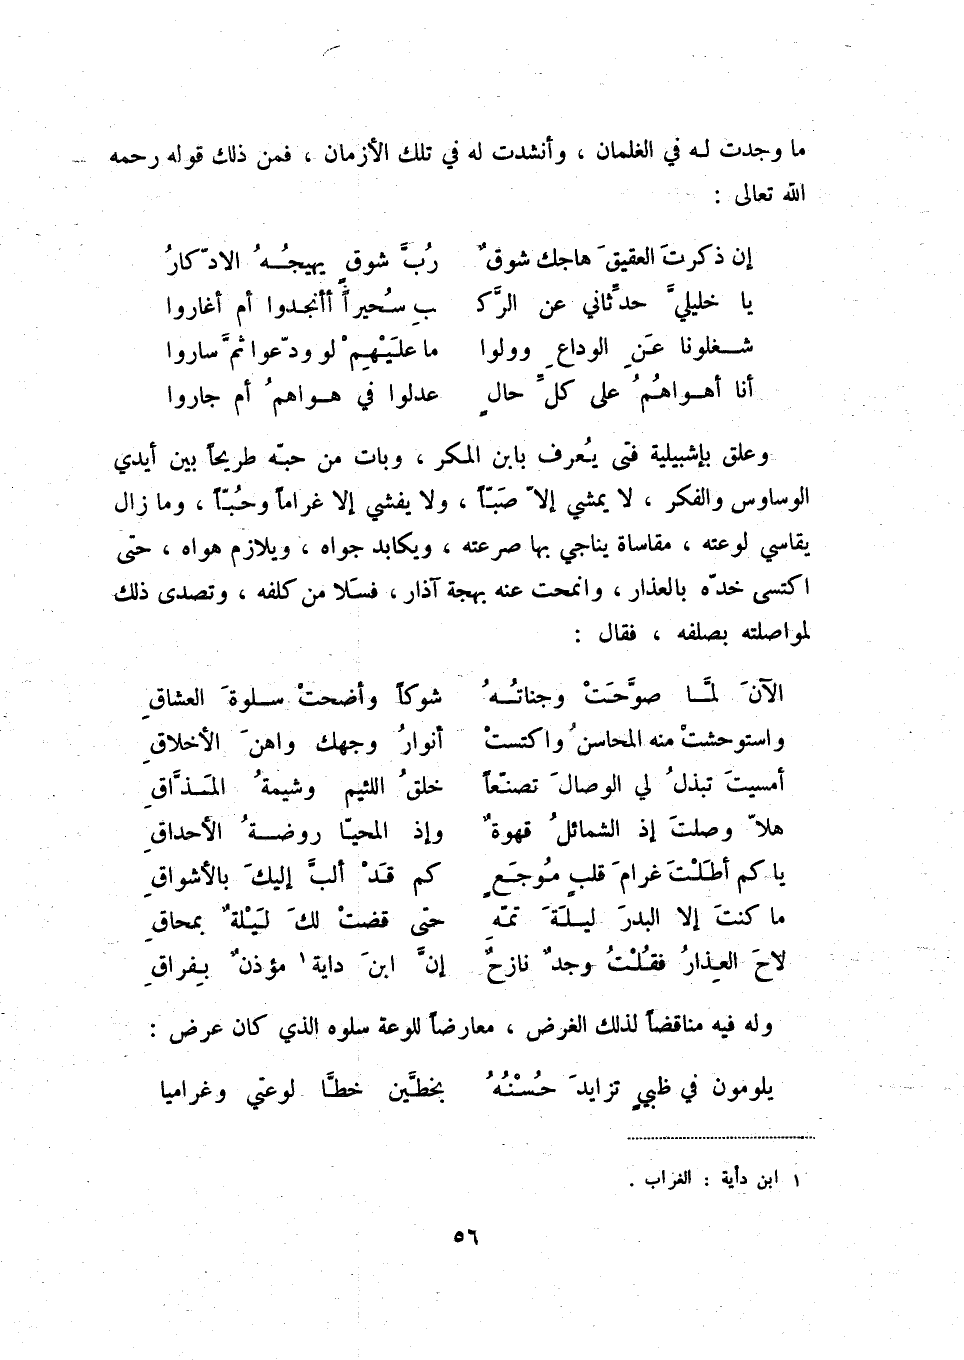 ما وجدت لـه في الغلمان ، وأنشدت له في تلك الأزمان ، فمن ذلك قوله رحمه
الله تعالى :
إن ذكرتَ العقيقَ هاجك شوقٌ رُبَّ شوقٍ يهيجُـهُ الادّكارُ
يا خليليَّ حدِّثاني عن الرَّكـ ـبِ سُحيراً أأنجدوا أم أغاروا
شـغلونا عَنِ الوداعِ وولوا ما علَيْهِمْ لو ودّعوا ثمَّ ساروا
أنا أهـواهُمُ على كلِّ حالٍ عدلوا في هـواهمُ أم جاروا
وعلق بإشبيلية فتى يُعرف بابن المكر ، وبات من حبّه طريحاً بين أيدي
الوساوس والفكر ، لا يمشي إلاّ صَبّاً ، ولا يفشي إلا غراماً وحُبّاً ، وما زال
يقاسي لوعته ، مقاساة يناجي بها صرعته ، ويكابد جواه ، ويلازم هواه ، حتّى
اكتسى خدّه بالعذار ، وانمحت عنه بهجة آذار ، فسَلا من كلفه ، وتصدى ذلك
لمواصلته بصلفه ، فقال :
الآنَ لمَّـا صوَّحَتْ وجناتُـهُ شوكاً وأضحتْ سـلوةَ العشاقِ
واستوحشتْ منه المحاسنُ واكتستْ أنوارُ وجهك واهنَ الأخلاقِ
أمسيتَ تبذلُ لي الوصالَ تصنّعاً خلقُ اللئيم وشيمةُ المَـذَّاقِ
هلاّ وصلتَ إذ الشمائلُ قهوةٌ وإذ المحيّا روضـةُ الأحداقِ
يا كم أطَلْتَ غرامَ قلبٍ مُوجَعٍ كم قَدْ ألبَّ إليكَ بالأشواقِ
ما كنتَ إلا البدرَ ليـلَةَ تمّهِ حتّى قضتْ لكَ لَيْلةٌ بمحاقِ
لاحَ العِذارُ فقُلْتُ وجدٌ نازحٌ إنَّ ابنَ داية١ مؤذنٌ بِفراقِ
وله فيه مناقضاً لذلك الغرض ، معارضاً للوعة سلوه الذي كان عرض :
يلومون في ظبيٍ تزايدَ حُسْنُهُ بخطَّين خطَّا لوعتي وغراميا
١ ابن دأية : الغراب .
٥٦